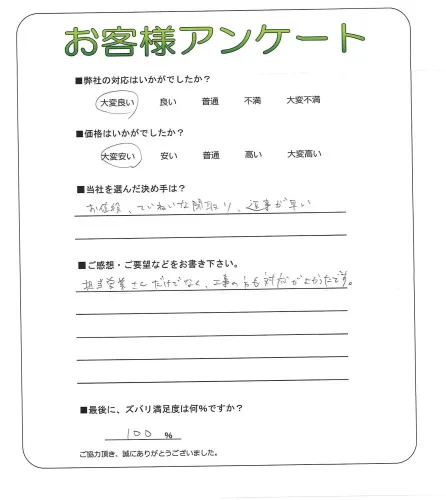 お客様アンケート
■弊社の対応はいかがでしたか？
大変良い 良い 普通 不満 大変不満
■価格はいかがでしたか？
大変安い 安い 普通 高い 大変高い
■当社を選んだ決め手は？
お値段、ていねいな聞取り、返事が早い
■ご感想・ご要望などをお書き下さい。
担当営業さんだけでなく、工事の方も対応がよかったです。
■最後に、ズバリ満足度は何%ですか？
100 %
ご協力頂き、誠にありがとうございました。